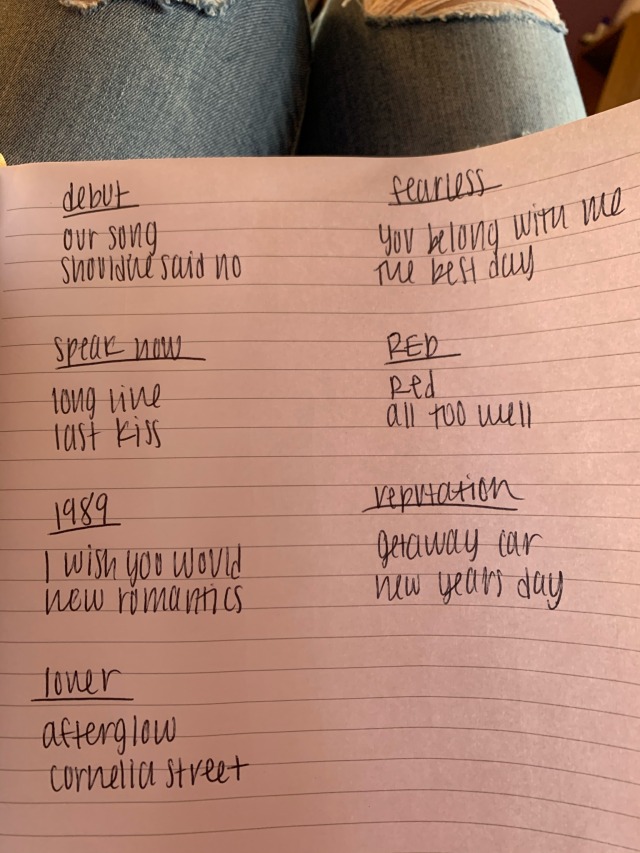 debut
our song
should've said no
fearless
you belong with me
the best day
speak now
long live
last kiss
RED
Red
all too well
1989
I wish you would
new romantics
reputation
getaway car
new years day
lover
afterglow
cornelia street